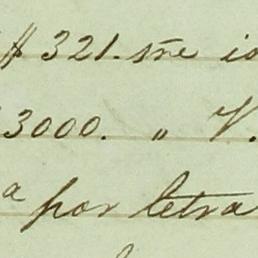 $ 321. sñe i
3000. " V.
a por letra